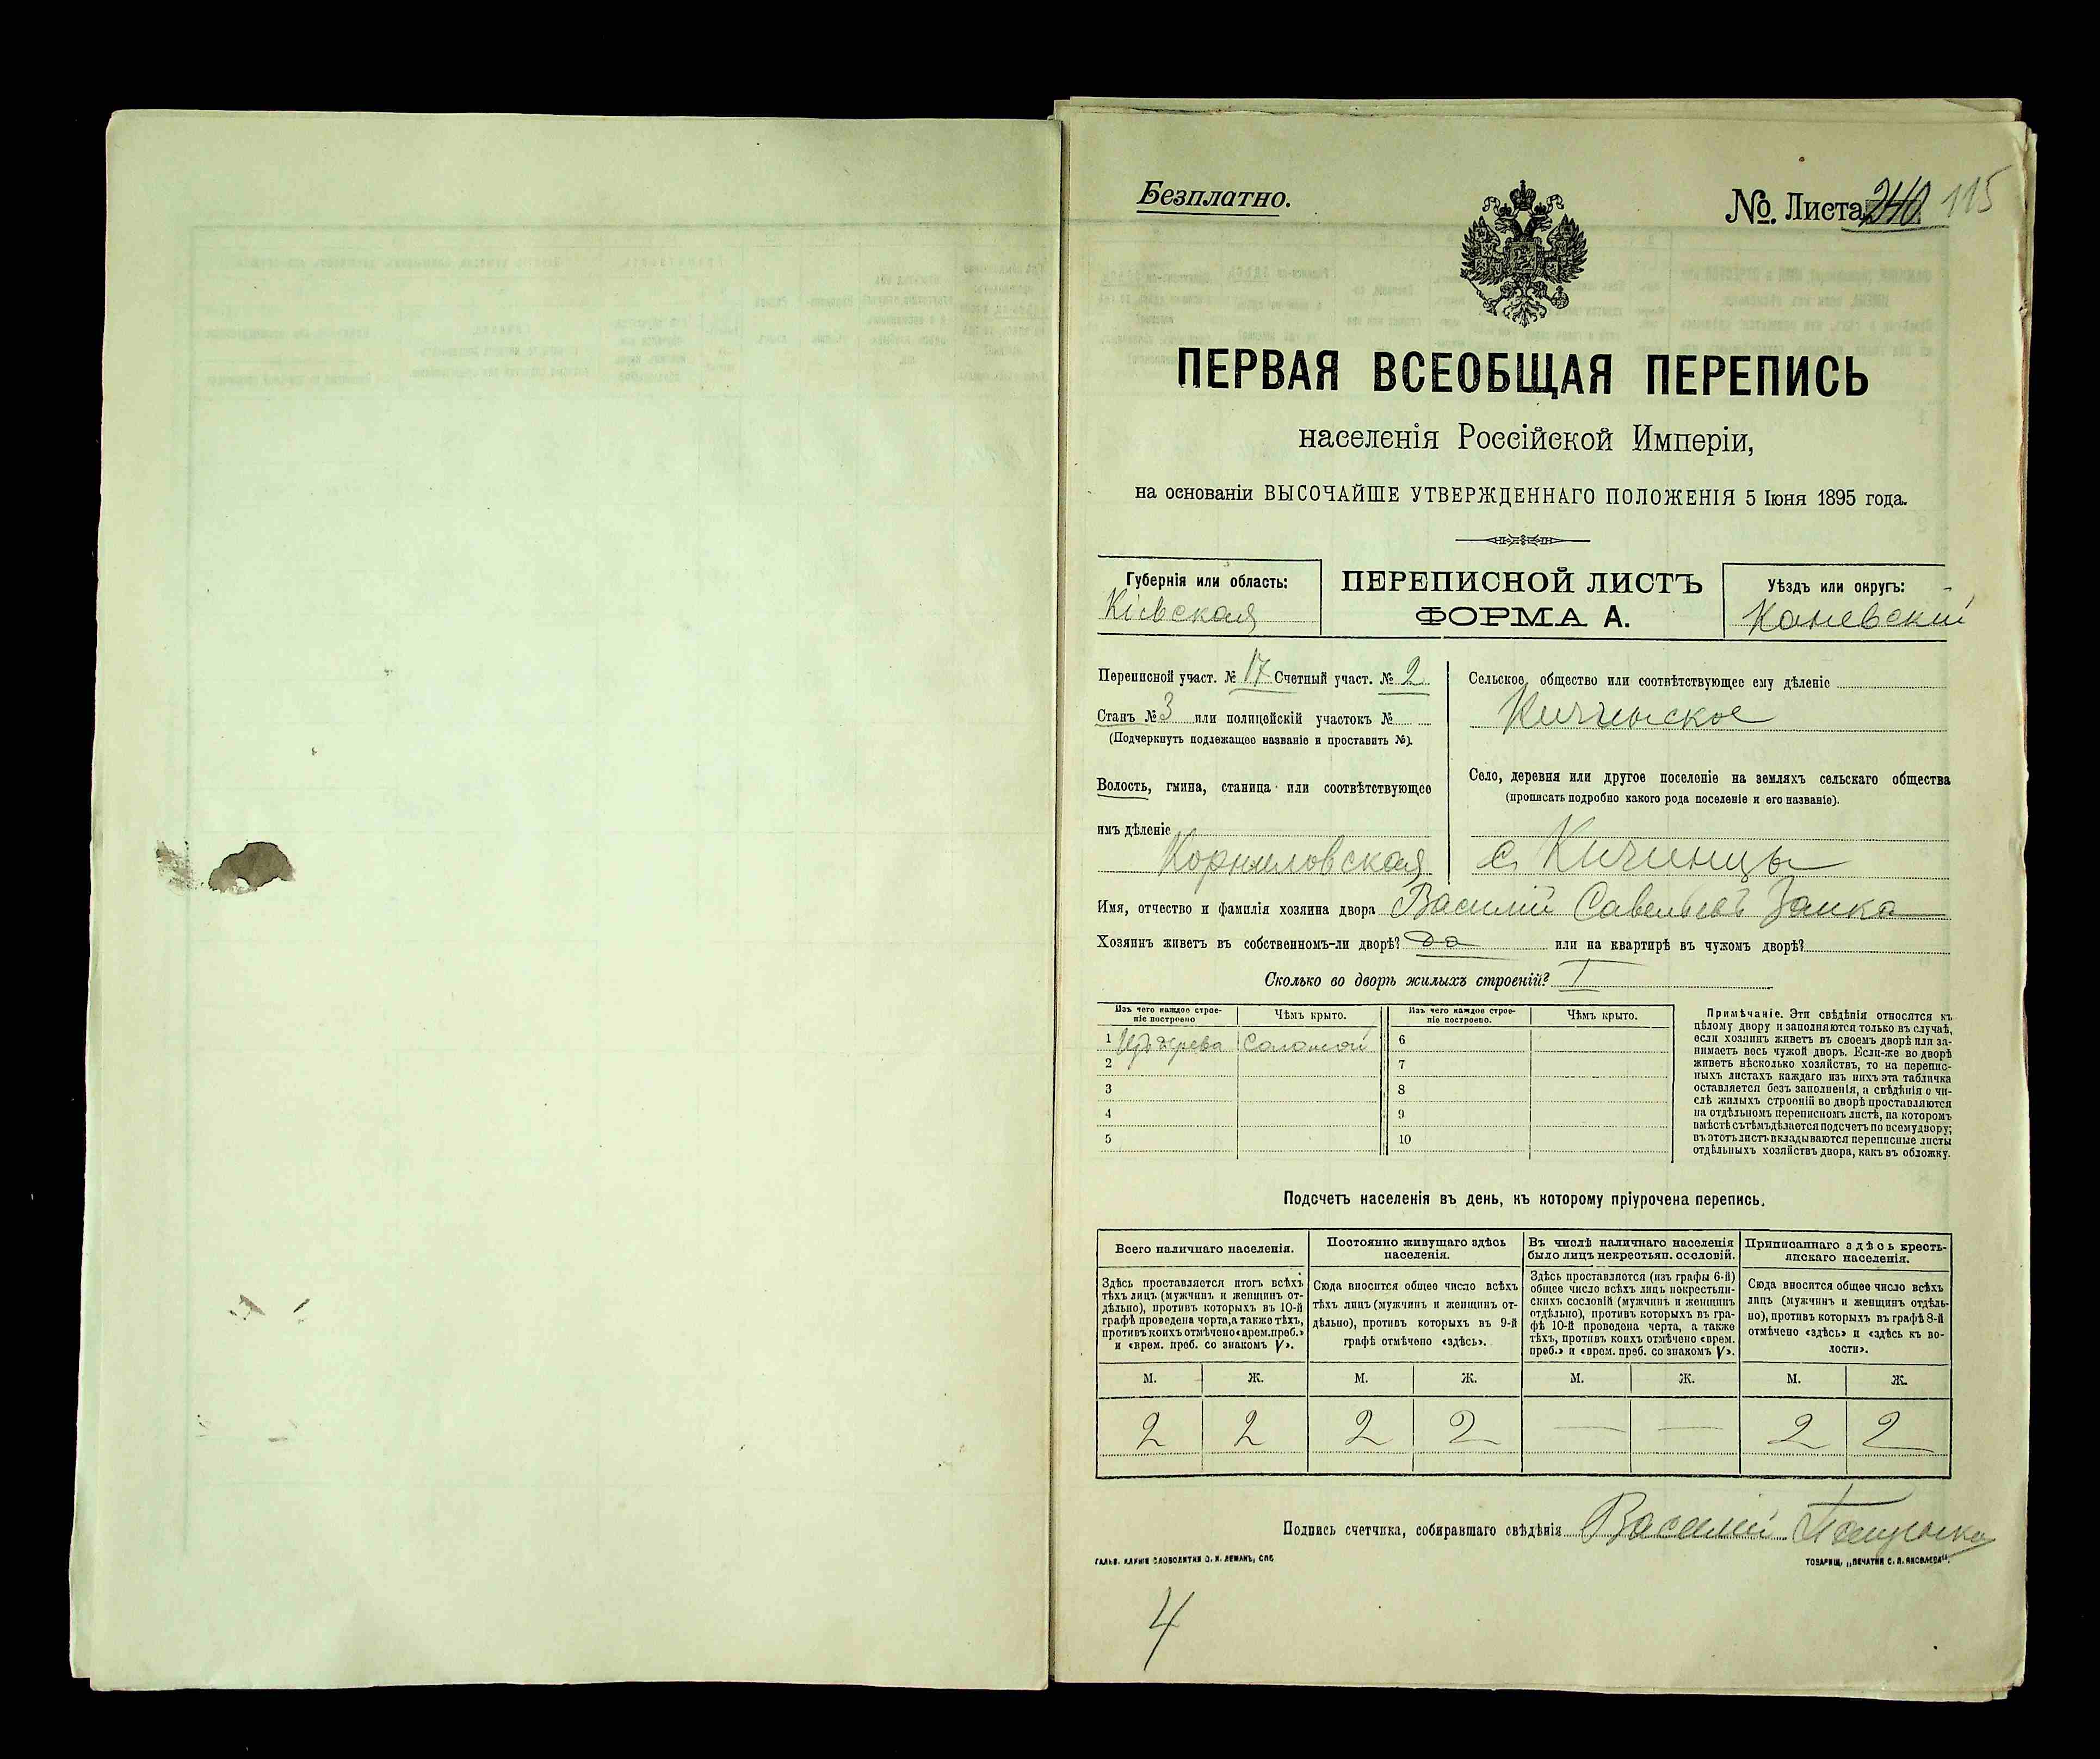 Безплатно.
№. Листа 240 115
ПЕРВАЯ ВСЕОБЩАЯ ПЕРЕПИСЬ
населенія Россійской Имперіи,
на основаніи ВЫСОЧАЙШЕ УТВЕРЖДЕННАГО ПОЛОЖЕНІЯ 5 Іюня 1895 года.
Губернія или область:
Кіевская
ПЕРЕПИСНОЙ ЛИСТЪ
ФОРМА А.
Уѣздъ или округъ:
Каневскій
Переписной участ. № 17 Счетный участ. № 2
Станъ № 3 или полицейскій участокъ №
(Подчеркнуть подлежащее названіе и проставить №).
Волость, гмина, станица или соотвѣтствующее
имъ дѣленіе
Корниловская
Сельское общество или соотвѣтствующее ему дѣленіе
Кичинское
Село, деревня или другое поселеніе на земляхъ сельскаго общества
(прописать подробно какого рода поселеніе и его названіе).
с. Кичинцы
Имя, отчество и фамилія хозяина двора Василій Савельевъ Заика
Хозяинъ живетъ въ собственномъ-ли дворѣ? да или на квартирѣ въ чужомъ дворѣ?
Сколько во дворѣ жилыхъ строеній? 1
Изъ чего каждое строе-
ніе построено
Чѣмъ крыто.
Изъ чего каждое строе-
ніе построено.
Чѣмъ крыто.
1 Изъ дерева Соломой 6
2 7
3 8
4 9
5 10
Примѣчаніе. Эти свѣдѣнія относятся къ
цѣлому двору и заполняются только въ случаѣ,
если хозяинъ живетъ въ своемъ дворѣ или за-
нимаетъ весь чужой дворъ. Если-же во дворѣ
живетъ нѣсколько хозяйствъ, то на перепис-
ныхъ листахъ каждаго изъ нихъ эта табличка
оставляется безъ заполненія, а свѣдѣнія о чи-
слѣ жилыхъ строеній во дворѣ проставляются
на отдѣльномъ переписномъ листѣ, на которомъ
вмѣстѣ съ тѣмъ дѣлается подсчетъ по всему двору;
въ этотъ листъ вкладываются переписные листы
отдѣльныхъ хозяйствъ двора, какъ въ обложку.
Подсчетъ населенія въ день, къ которому пріурочена перепись.
Всего наличнаго населенія.
Здѣсь проставляется итогъ всѣхъ
тѣхъ лицъ (мужчинъ и женщинъ от-
дѣльно), противъ которыхъ въ 10-й
графѣ проведена черта, а также тѣхъ,
противъ коихъ отмѣчено «врем. преб.»
и «врем. преб. со знакомъ V».
Постоянно живущаго здѣсь
населенія.
Сюда вносится общее число всѣхъ
тѣхъ лицъ (мужчинъ и женщинъ от-
дѣльно), противъ которыхъ въ 9-й
графѣ отмѣчено «здѣсь».
Въ числѣ наличнаго населенія
было лицъ некрестьян. сословій.
Здѣсь проставляется (изъ графы 6-й)
общее число всѣхъ лицъ некрестьян-
скихъ сословій (мужчинъ и женщинъ
отдѣльно), противъ которыхъ въ гра-
фѣ 10-й проведена черта, а также
тѣхъ, противъ коихъ отмѣчено «врем.
преб.» и «врем. преб. со знакомъ V».
Приписаннаго здѣсь кресть-
янскаго населенія.
Сюда вносится общее число всѣхъ
лицъ (мужчинъ и женщинъ отдѣль-
но), противъ которыхъ въ графѣ 8-й
отмѣчено «здѣсь» и «здѣсь къ во-
лости».
М. Ж. М. Ж. М. Ж. М. Ж.
2 2 2 2 — — 2 2
Подпись счетчика, собиравшаго свѣдѣнія Василій
ТОВАРИЩ. „ПЕЧАТНЯ С. П. ЯКОВЛЕВА".
4